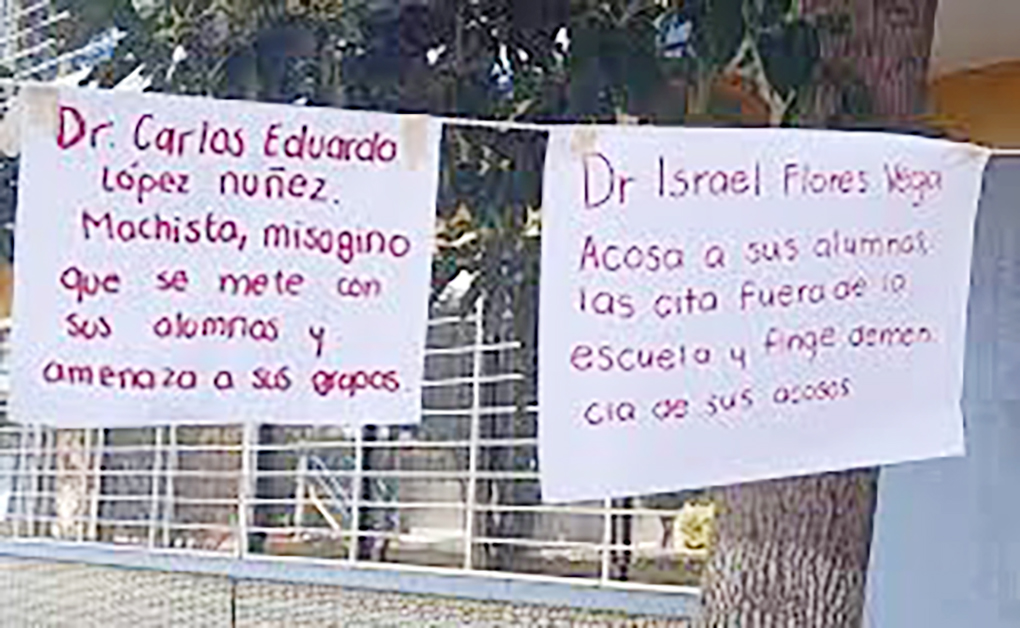 Dr. Carlos Eduardo
López nuñez.
Machista, misogino
que se mete con
sus alumnas y
amenaza a sus grupos.
Dr Israel Flores Vega
Acosa a sus alumnas
las cita fuera de la
escuela y finge demen
cia de sus acosos